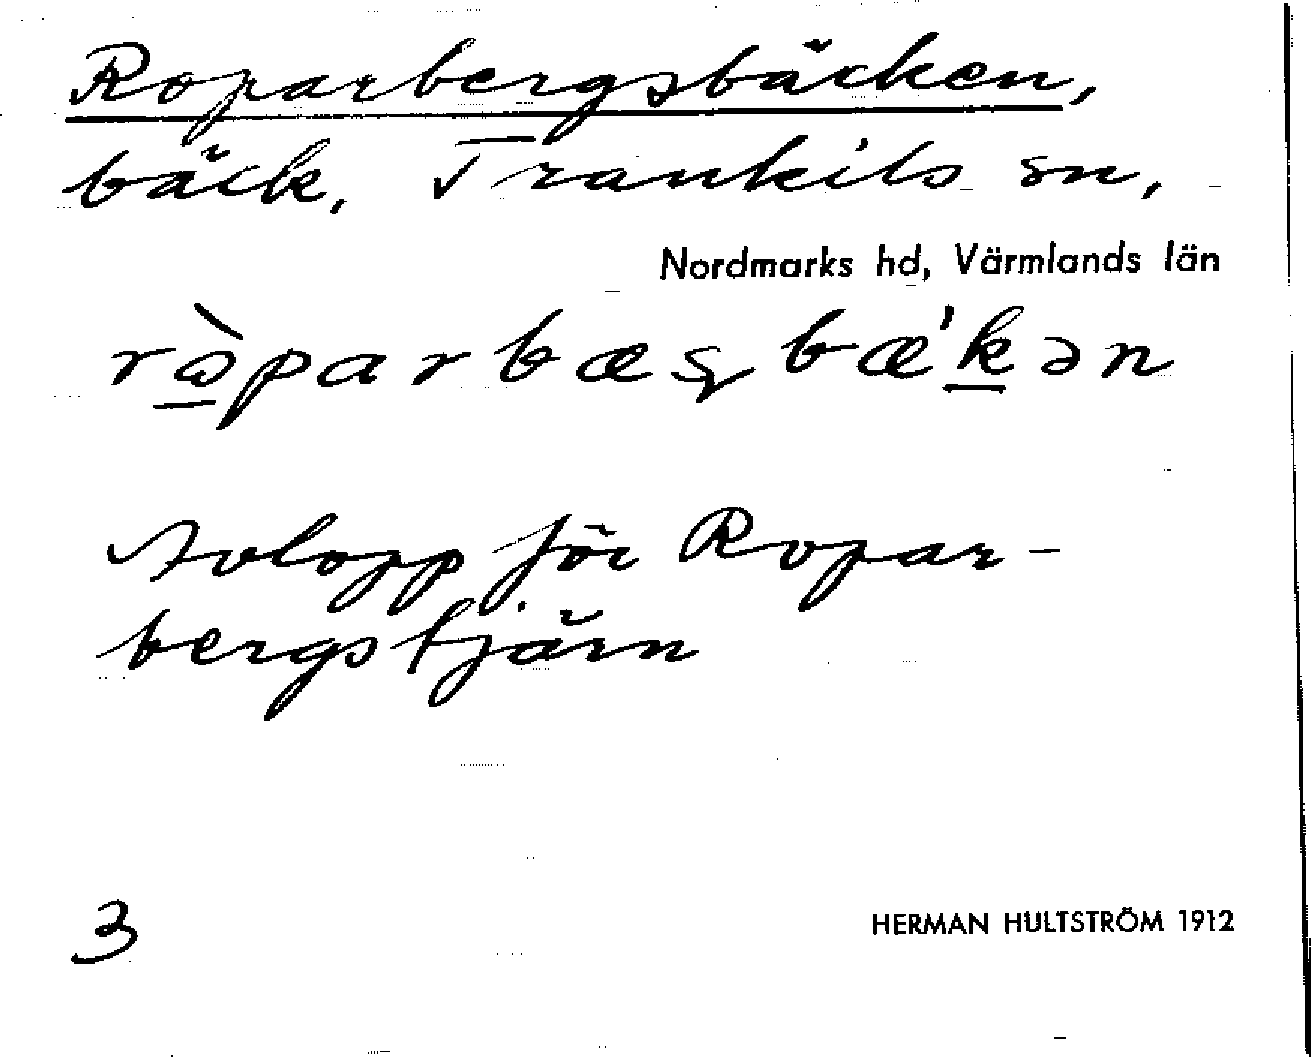 Roparbergsbäcken,
bäck, Trankils sn,
Nordmarks hd, Värmlands län
ròparbæʂbæ'kən
Avlopp för Ropar-
bergstjärn
3
HERMAN HULTSTRÖM 1912